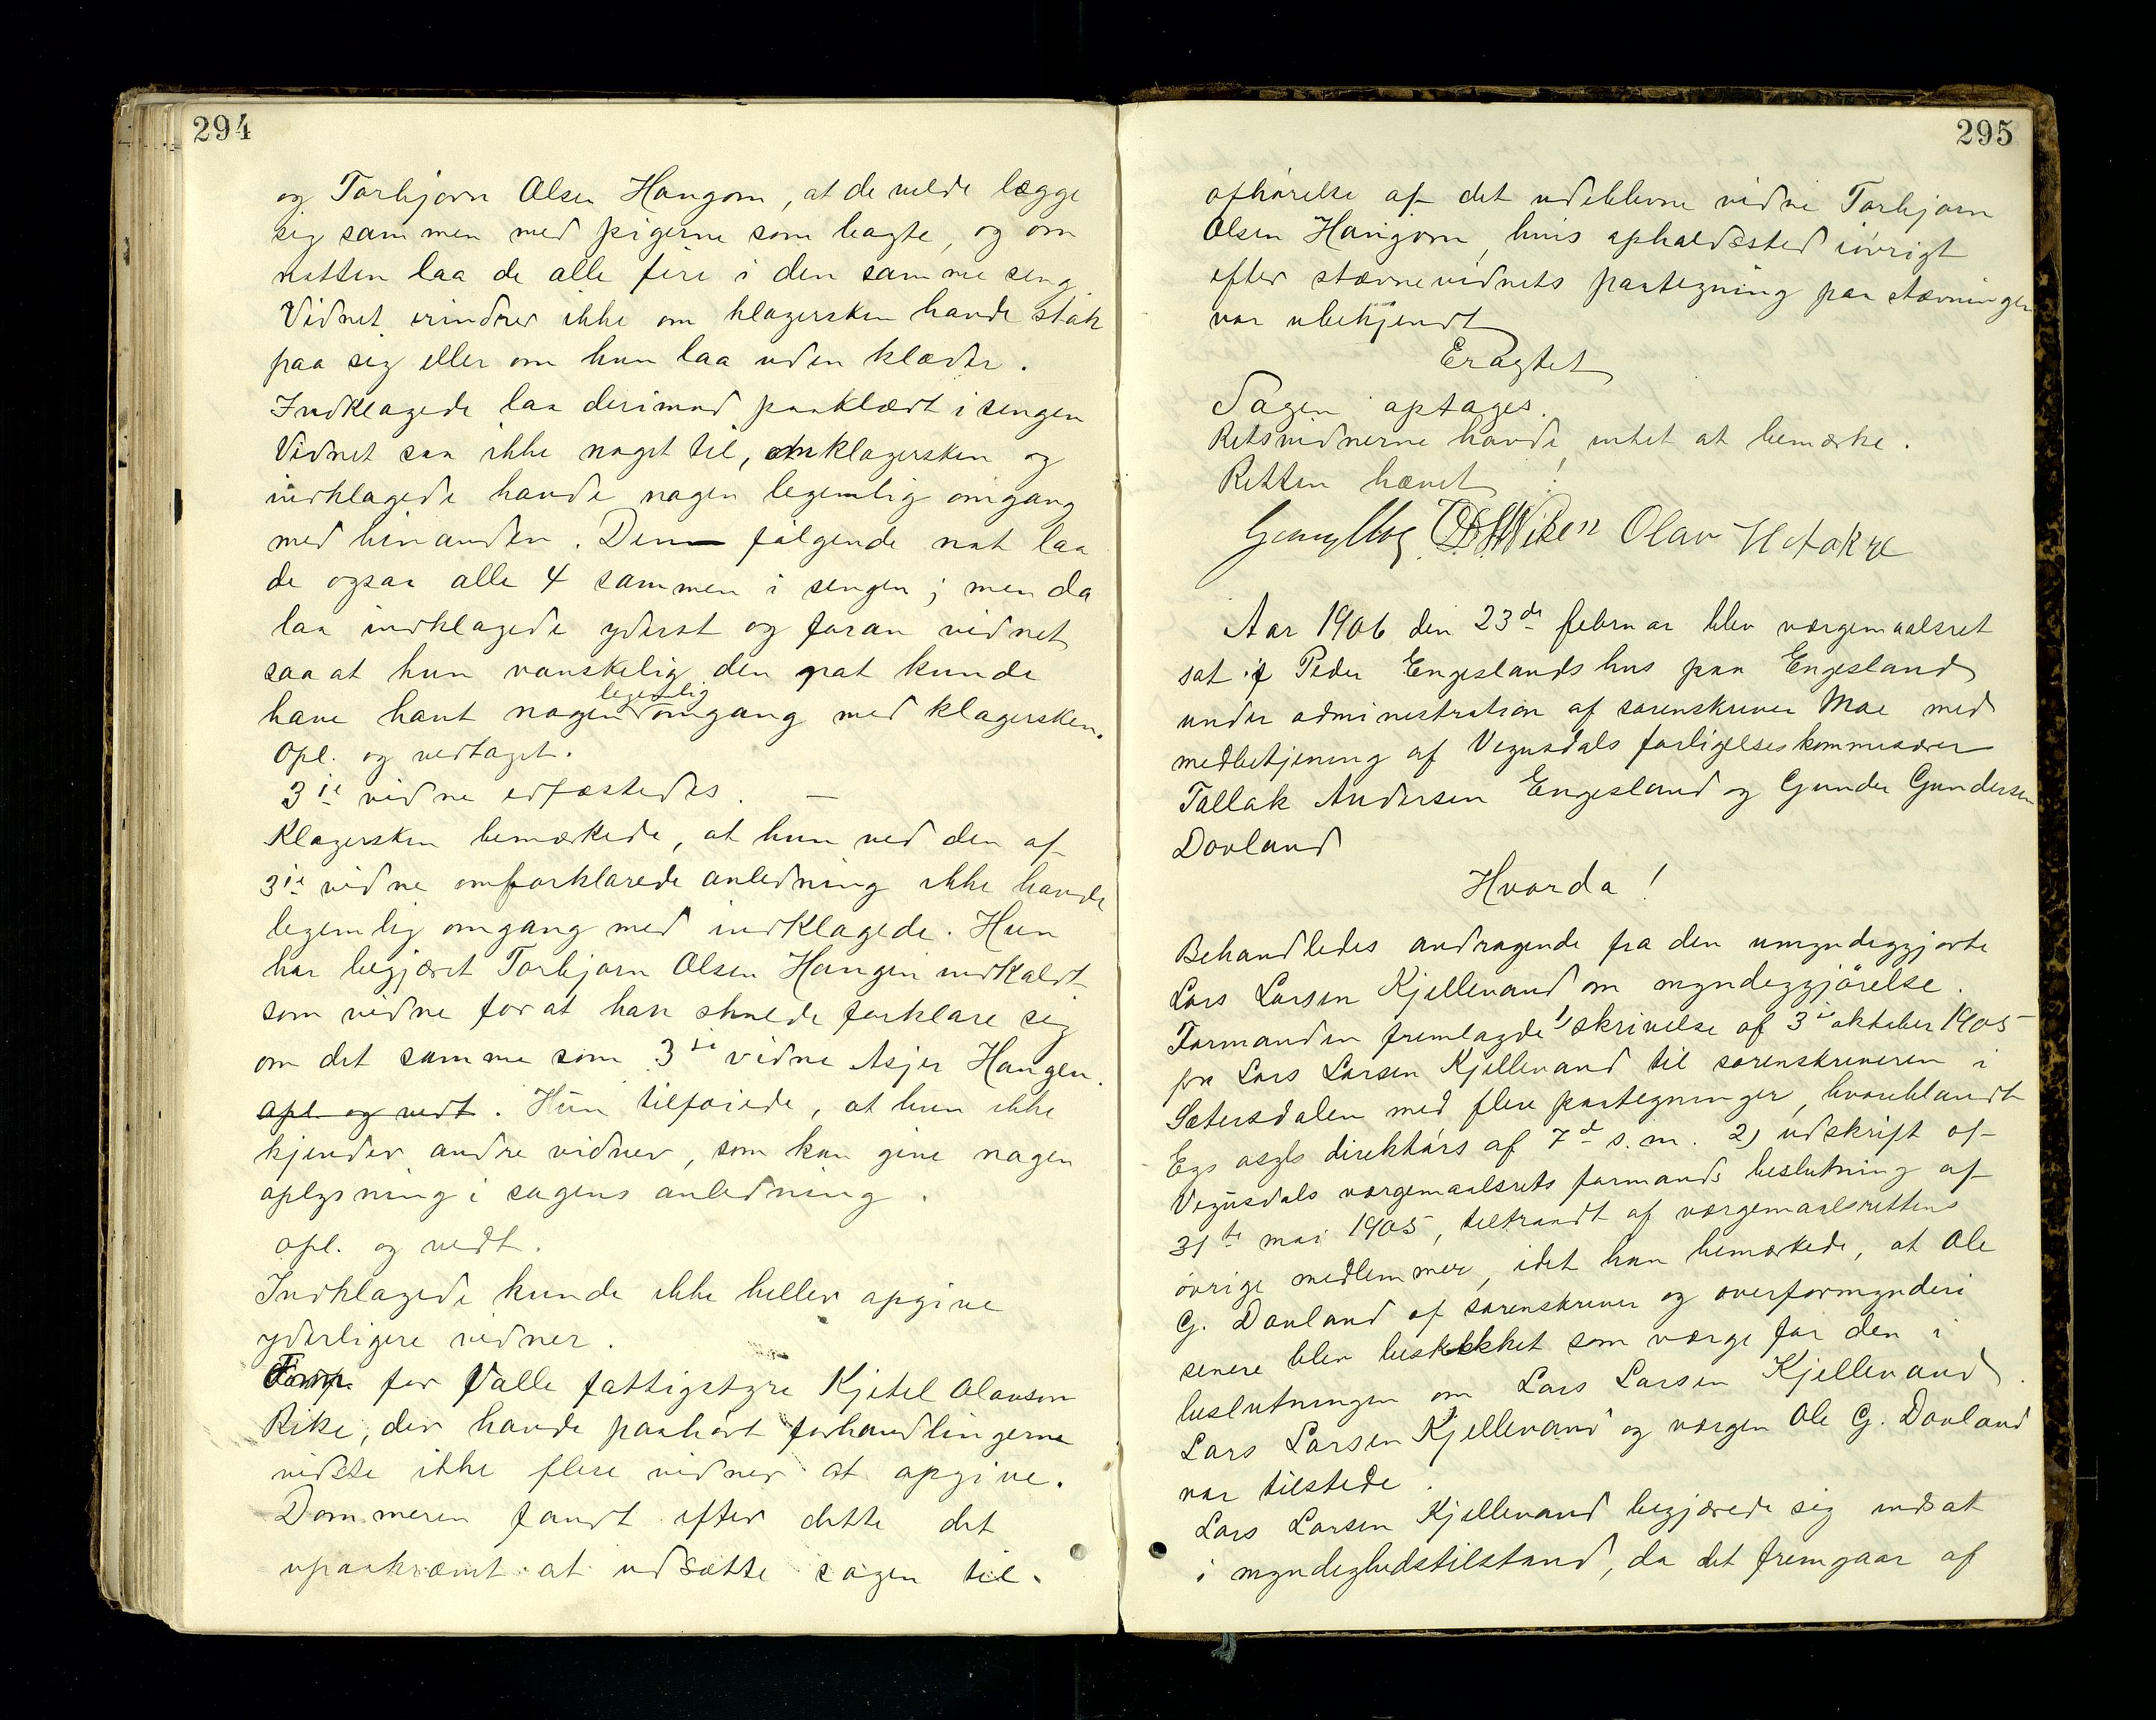 294
og Torbjørn Olsen Haugom, at de vilde lægge
sig sammen med pigerne som leagte, og om
natten laa de alle fire i den samme seng
Vidnet erindrer ikke om klagersken havde stak
paa sig eller om hun laa uden klæder.
Indklagede laa derimod paaklædt i sengen
Vidnet saa ikke noget til, om klagersken og
indklagede havde nogen legemlig omgang
med hinanden. Den følgende nat laa
de ogsaa alle 4 sammen i sengen; men da
laa indklagede yderst og foran vidnet
saa at hun vanskelig den nat kunde
have havt nogen legemlig omgang med klagersken.
Opl. og vedtaget.
3ie vidne edfæstedes. —
Klagersken bemærkede, at hun ved den af
3ie vidne omforklarede anledning ikke havde
legemlig omgang med indklagede. Hun
har begjæret Torbjørn Olsen Haugen indkaldt
som vidne for at han skulde forklare sig
om det samme som 3ie vidne Asjer Haugen.
opl. og vedt. Hun tilføiede, at hun ikke
kjender andre vidner, som kan give nogen
oplysning i sagens anledning.
opl. og vedt.
Indklagede kunde ikke heller opgive
yderligere vidner.
Form. for Valle fattigstyre Kjetel Olavson
Rike, der havde paahørt forhandlingerne
vidste ikke flere vidner at opgive.
Dommeren fandt efter dette det
upaakrævet at udsætte sagen til
295
afhørelse af det udeblevne vidne Torbjørn
Olsen Haugom, hvis opholdssted iøvrigt
efter stævnevidnets paategning paa stævningen
var ubekjendt
Eragtet
Sagen optages.
Retsvidnerne havde intet at bemærke.
Retten hævet!
Olav
Aar 1906 den 23de februar blev værgemaalsret
sat i Peder Engeslands hus paa Engesland
under administration af sorenskriver Moe med
medbetjening af Vegusdals forligelseskommisærer
Tallak Andersen Engesland og Gunder Gundersen
Dovland
Hvorda!
Behandledes andragende fra den umyndiggjorte
Lars Larsen Kjellevand om myndiggjørelse.
Formanden fremlagde 1) skrivelse af 3ie oktober 1905
fra Lars Larsen Kjellevand til sorenskriveren i
Sætersdalen med flere paategninger, hvoriblandt
Egs asyls direktørs af 7de s.m. 2) udskrift af
Vegusdals værgemaalsrets formands beslutning af
31te mai 1905, tiltraadt af værgemaalsrettens
øvrige medlemmer, idet han bemærkede, at Ole
G. Dovland af sorenskriver og overformynderi
senere blev beskikket som værge for den i
beslutningen om Lars Larsen Kjellevand.
Lars Larsen Kjellevand og værgen Ole G. Dovland
var tilstede.
Lars Larsen Kjellevand begjærede sig indsat
i myndighedstilstand, da det fremgaar af